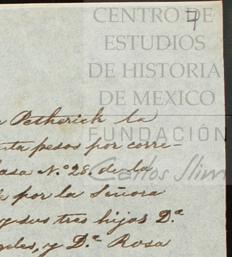 7
CENTRO DE
ESTUDIOS
DE HISTORIA
DE MEXICO
FUNDACIÓN
Carlos Slim
Petherick la
ta pesos por corre-
asa N.º 28. de la
por la Señora
sus tres hijas D.ª
les, y D.ª Rosa